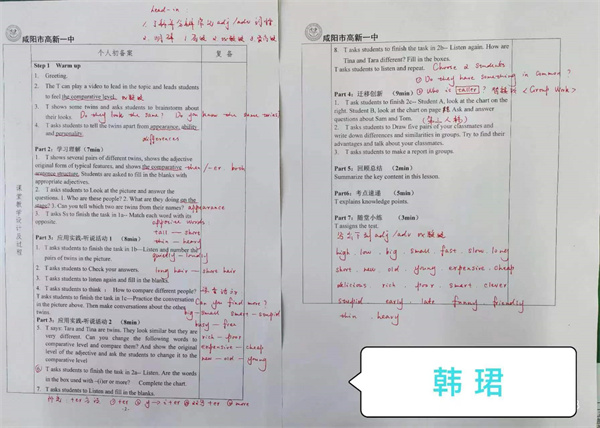 lead-in
咸阳市高新一中
个人初备案
复备
Step 1 Warm up
1. Greeting.
2. The T can play a video to lead in the topic and leads students
to feel the comparative level.
3. T shows some twins and asks students to brainstorm about
their looks. Do they look the same? Do you know the same twins
4. T asks students to tell the twins apart from appearance, ability
and personality.
differences
Part 2：学习理解（7min）
1. T shows several pairs of different twins, shows the adjective
original form of typical features, and shows the comparative
sentence structure. Students are asked to fill in the blanks with
appropriate adjectives.
than /-er
both
2. T asks students to Look at the picture and answer the
questions. 1. Who are these people? 2. What are they doing on the
stage? 3. Can you tell which two are twins from their names?
appearance
3. T asks Ss to finish the task in 1a-- Match each word with its
opposite.
opposite words
tall — short
thin — heavy
Part 3：应用实践-听说活动 1 （8min）
1. T asks students to finish the task in 1b—Listen and number the
pairs of twins in the picture.
quietly — loudly
2. T asks students to Check your answers.
long hair — short hair
3. T asks students to listen again and fill in the blanks.
4. T asks students to think ， How to compare different people?
T asks students to finish the task in 1c—Practice the conversation
in the picture above. Then make conversations about the other
twins.
Can you find more?
big — small smart — stupid
Part 3：应用实践-听说活动 2 （8min）
busy — free
5. T says: Tara and Tina are twins. They look similar but they are
very different. Can you change the following words to
comparative level and compare them? And show the original
level of the adjective and ask the students to change it to the
comparative level
rich — poor
expensive — cheap
new — old — young
6. T asks students to finish the task in 2a-- Listen. Are the words
in the box used with -(i)er or more? Complete the chart.
7. T asks students to Listen and fill in the blanks.
课堂教学设计及过程
咸阳市高新一中
8. T asks students to finish the task in 2b-- Listen again. How are
Tina and Tara different? Fill in the boxes.
T asks students to listen and repeat.
Choose 2 students
① Do they have something in common?
② Who is taller?
<Group Work>
Part 4：迁移创新 （9min）
1. T ask students to finish 2c-- Student A, look at the chart on the
right. Student B, look at the chart on page Ask and answer
questions about Sam and Tom.
2. T asks students to Draw five pairs of your classmates and
write down differences and similarities in groups. Try to find their
advantages and talk about your classmates.
3. T asks students to make a report in groups.
Part 5：回顾总结 （2min）
Summarize the key content in this lesson.
Part6，考点速递 （5min）
T explains knowledge points.
Part 7，随堂小练 （3min）
T assigns the test.
high low big small fast slow long
short new old young expensive cheap
delicious rich poor smart clever
stupid early late funny friendly
thin heavy
韩珺